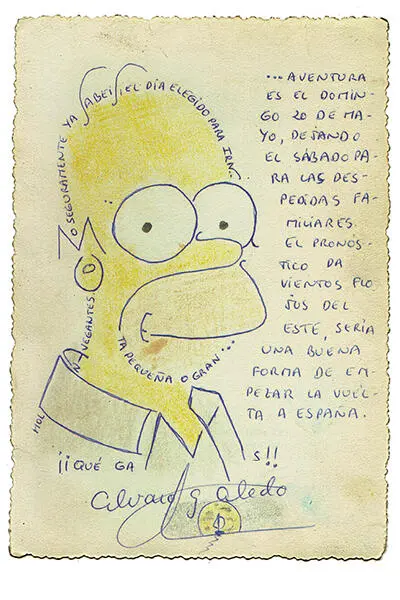 HOL
NAVEGANTES.
O SEGURAMENTE YA SABEIS, EL DÍA ELEGIDO PARA IRN...
TA PEQUEÑA O GRAN...
...AVENTURA
ES EL DOMIN-
GO 20 DE MA-
YO, DEJANDO
EL SÁBADO PA-
RA LAS DES-
PEDIDAS FA-
MILIARES.
EL PRONÓS-
TICO DA
VIENTOS FLO-
JOS DEL
ESTE, SERÍA
UNA BUENA
FORMA DE EM-
PEZAR LA VUEL-
TA A ESPAÑA.
¡¡QUÉ GA S!!
Alvaro G Aledo